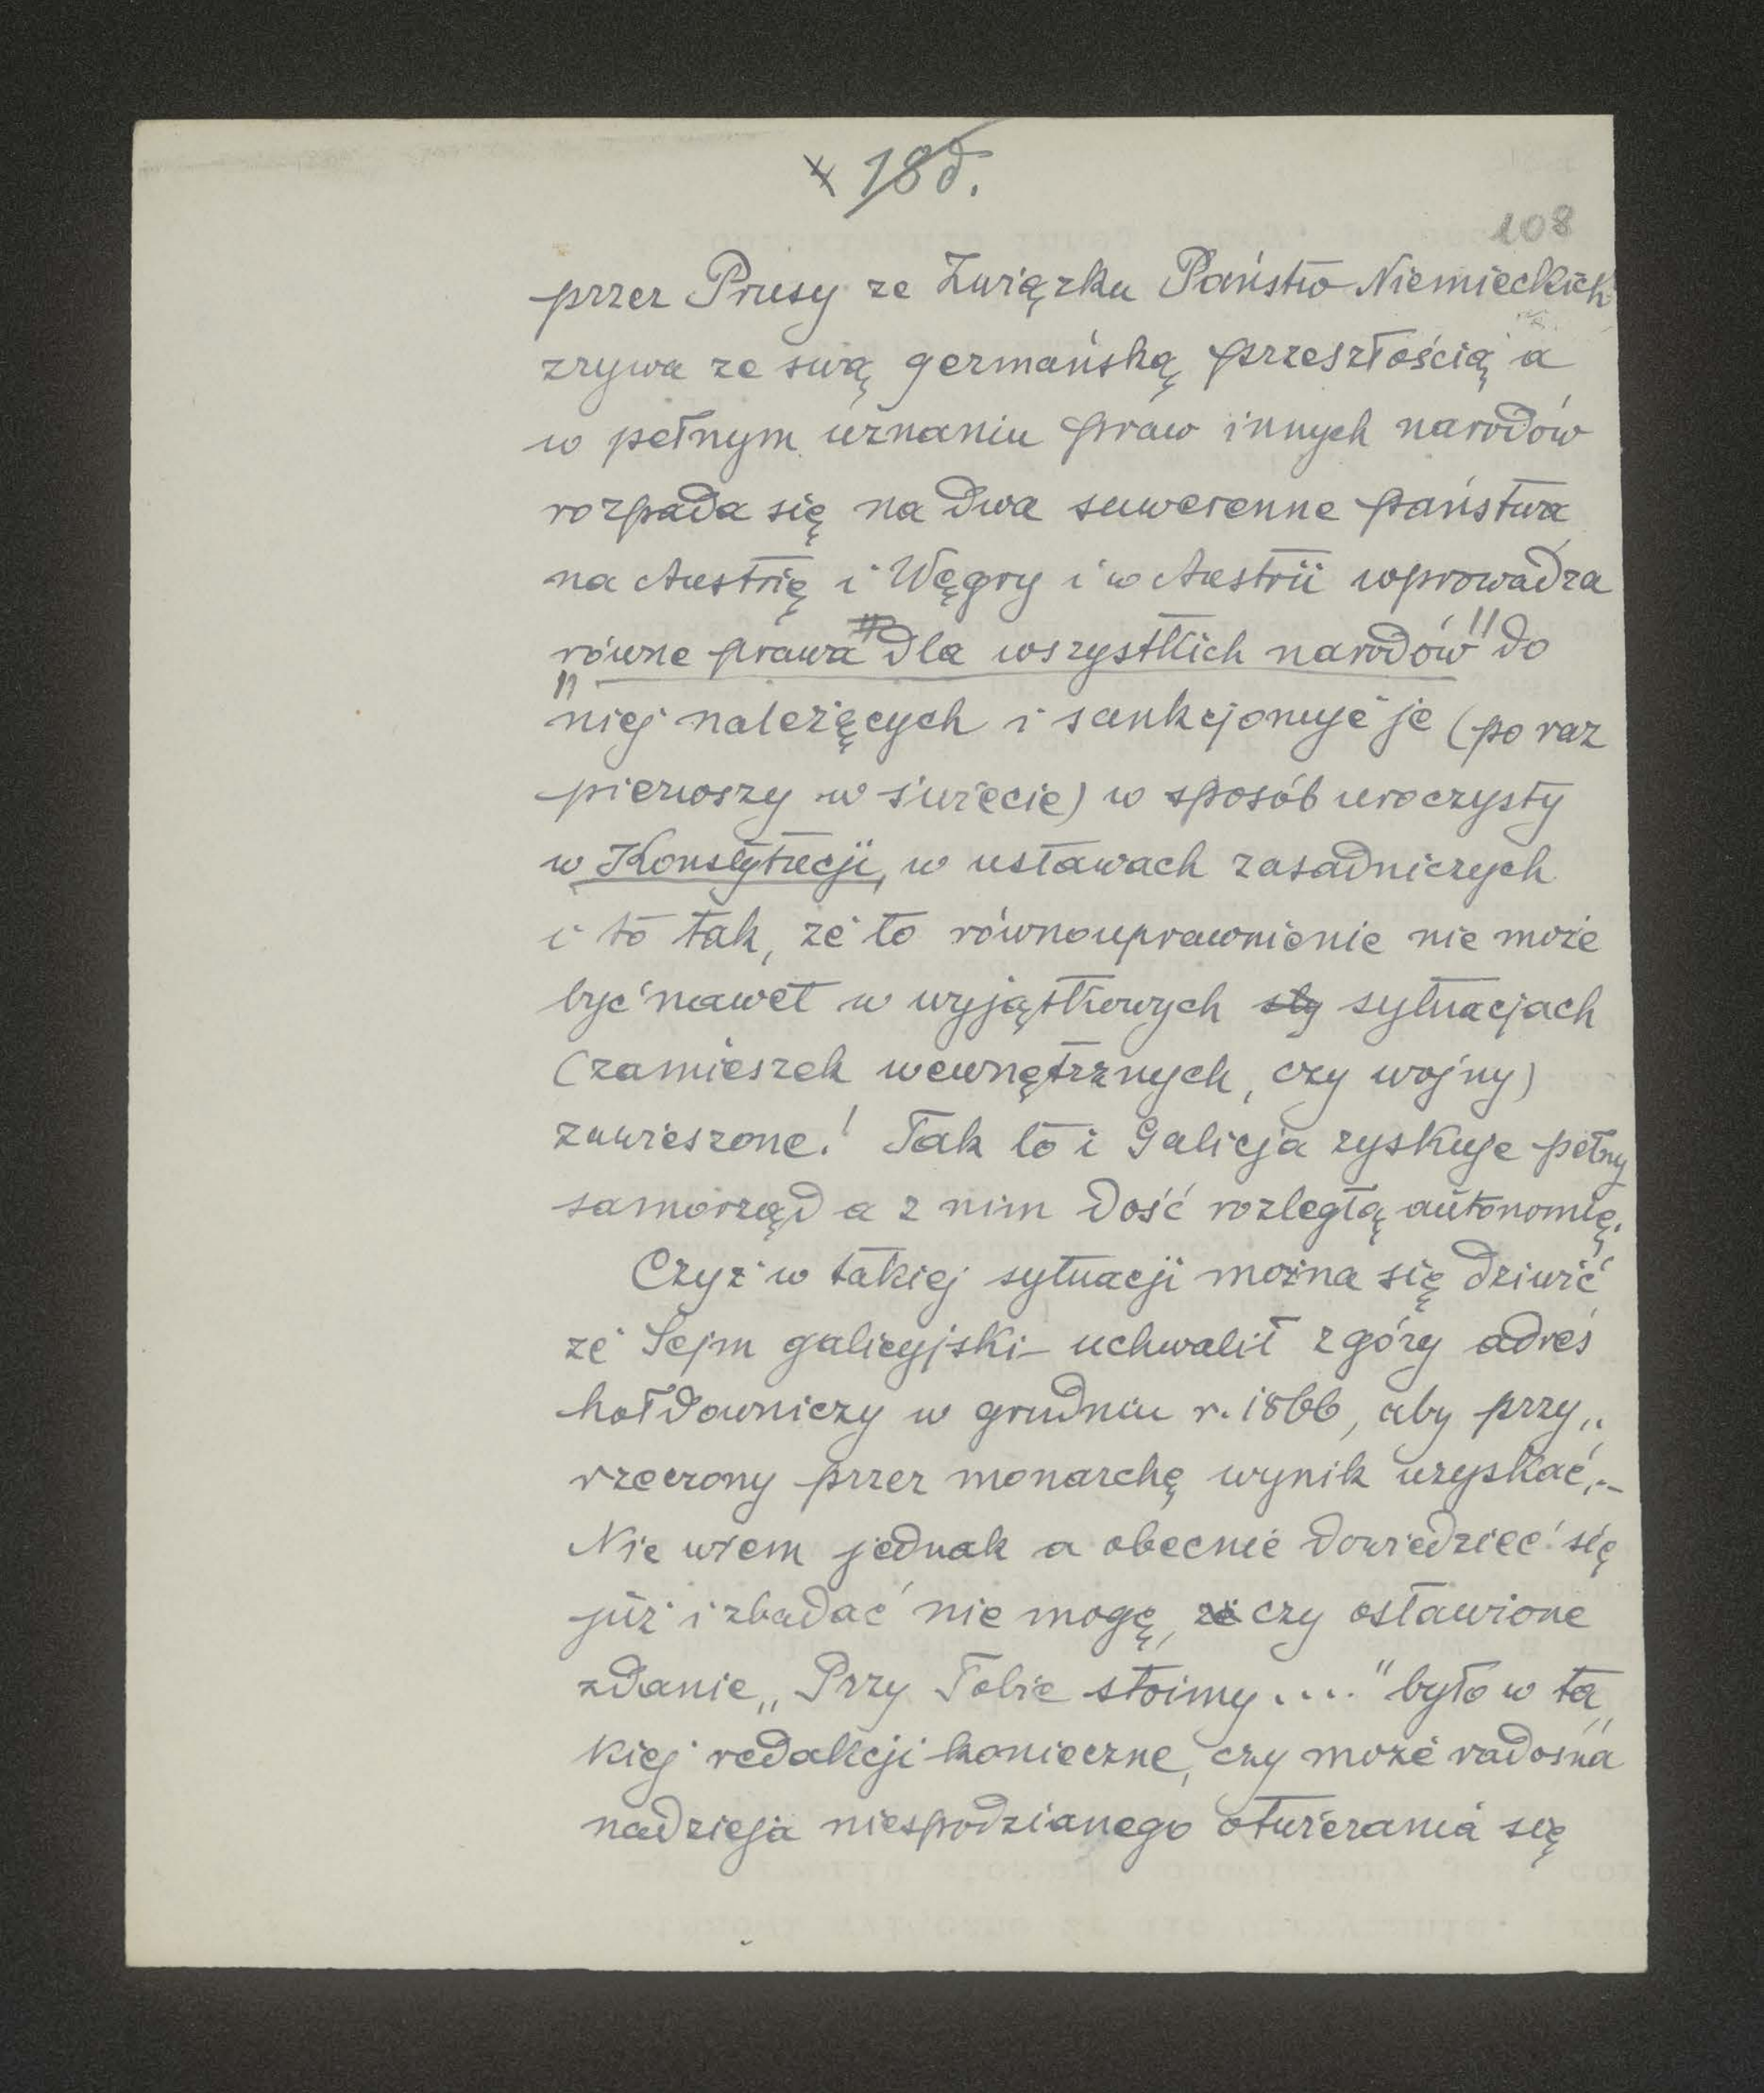 x 18d.
108
przez Prusy ze Związku Państw Niemieckich
zrywa ze swą germańską przeszłością a
w pełnym uznaniu praw innych narodów
rozpada się na dwa suwerenne państwa
na Austrię i Węgry i w Austrii wprowadza
„równe prawa dla wszystkich narodów" do
niej należących i sankcjonuje je (po raz
pierwszy w świecie) w sposób uroczysty
w Konstytucji, w ustawach zasadniczych
i to tak, że to równouprawnienie nie może
być nawet w wyjątkowych sty sytuacjach
(zamieszek wewnętrznych, czy wojny)
zawieszone! Tak to i Galicja zyskuje pełny
samorząd a z nim dość rozległą autonomię.
Czyż w takiej sytuacji można się dziwić
że Sejm galicyjski – uchwalił zgóry adres
hołdowniczy w grudniu r. 1866, aby przy„
rzeczony przez monarchę wynik uzyskać.–
Nie wiem jednak a obecnie dowiedzieć się
już i zbadać nie mogę, że czy osławione
zdanie „Przy Tobie stoimy...." było w ta„
kiej redakcji konieczne, czy może radosna
nadzieja niespodzianego otwierania się